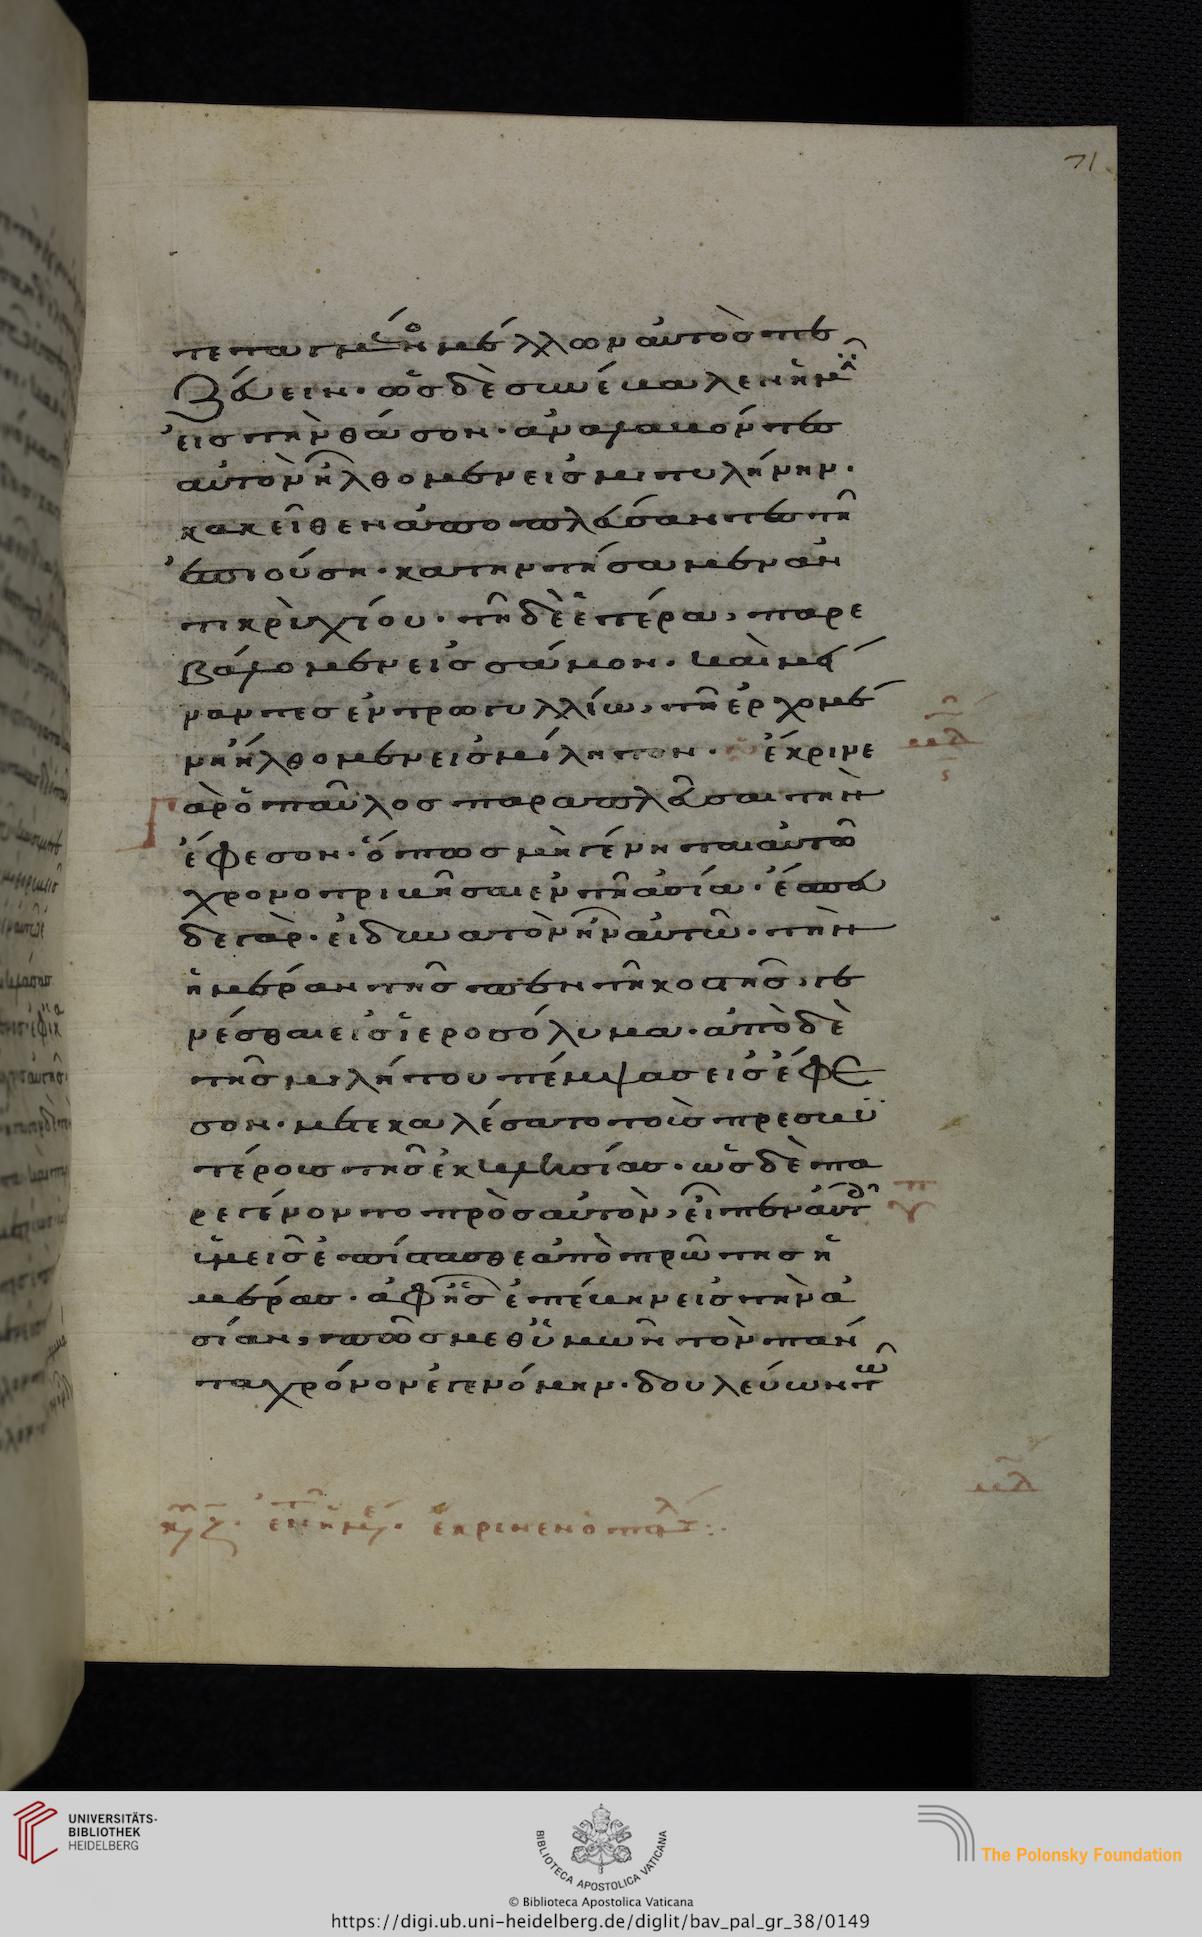 71
τεταγμένος ἦν μέλλων αὐτὸς πε
ζεύειν· ὡς δὲ συνέβαλεν ἡμῖν
εἰς τὴν θάσον· ἀναλαβόντες
αὐτὸν ἤλθομεν εἰς μιτυλήνην·
κακεῖθεν ἀποπλεύσαντες τῆ
ἐπιούση· κατηντήσαμεν ἀν
τικρὺ χίου· τῆ δὲ ἑτέρα, παρε
βάλομεν εἰς σάμον· καὶ μεί
ναντες ἐν τρωγυλλίω, τῆ ἐρχομέ
νη ἤλθομεν εἰς μίλητον· ἔκρινε
γὰρ ὁ παῦλος παραπλεῦσαι τὴν
ἔφεσον· ὅπως μὴ γένηται αὐτῶ
χρονοτριβῆσαι ἐν τῆ ἀσία· ἔσπευ
δε γάρ· εἰ δυνατὸν ἦν αὐτῶ· τὴν
ἡμέραν τῆς πεντηκοστῆς, γε
νέσθαι εἰς ἱεροσόλυμα· ἀπὸ δὲ
τῆς μιλήτου πέμψας εἰς ἔφε
σον· μετεκαλέσατο τοὺς πρεσβυ
τέρους τῆς ἐκκλησίας· ὡς δὲ πα
ρεγένοντο πρὸς αὐτὸν, εἶπεν αὐτοῖς
ὑμεῖς ἐπίστασθε ἀπὸ πρώτης ἡ
μέρας· ἀφ' ἧς ἐπέβην εἰς τὴν ἀ
σίαν, πῶς μεθ' ὑμῶν τὸν πάν
τα χρόνον ἐγενόμην· δουλεύων τῶ
ἔκρινεν ὁ παῦλος
UNIVERSITÄTS-
BIBLIOTHEK
HEIDELBERG
BIBLIOTECA APOSTOLICA VATICANA
The Polonsky Foundation
© Biblioteca Apostolica Vaticana
https://digi.ub.uni-heidelberg.de/diglit/bav_pal_gr_38/0149